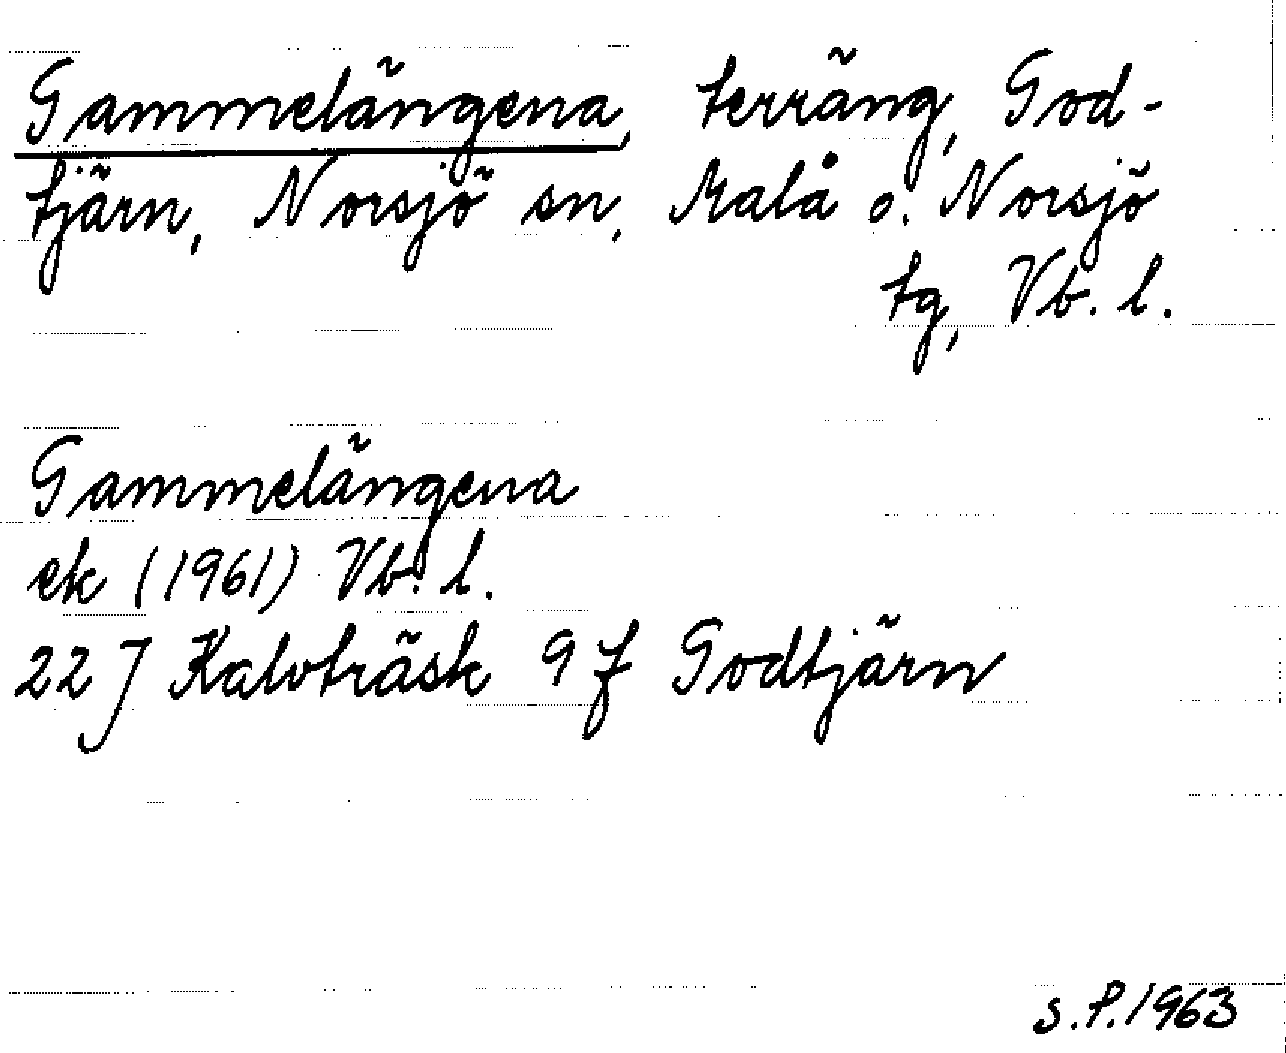 Gammelängena, terräng, God-
tjärn, Norsjö sn, Malå o. Norsjö
tg, Vb. l.
Gammelängena
ek (1961) Vb. l.
22 J Kalvträsk 9 f Godtjärn
s.P. 1963